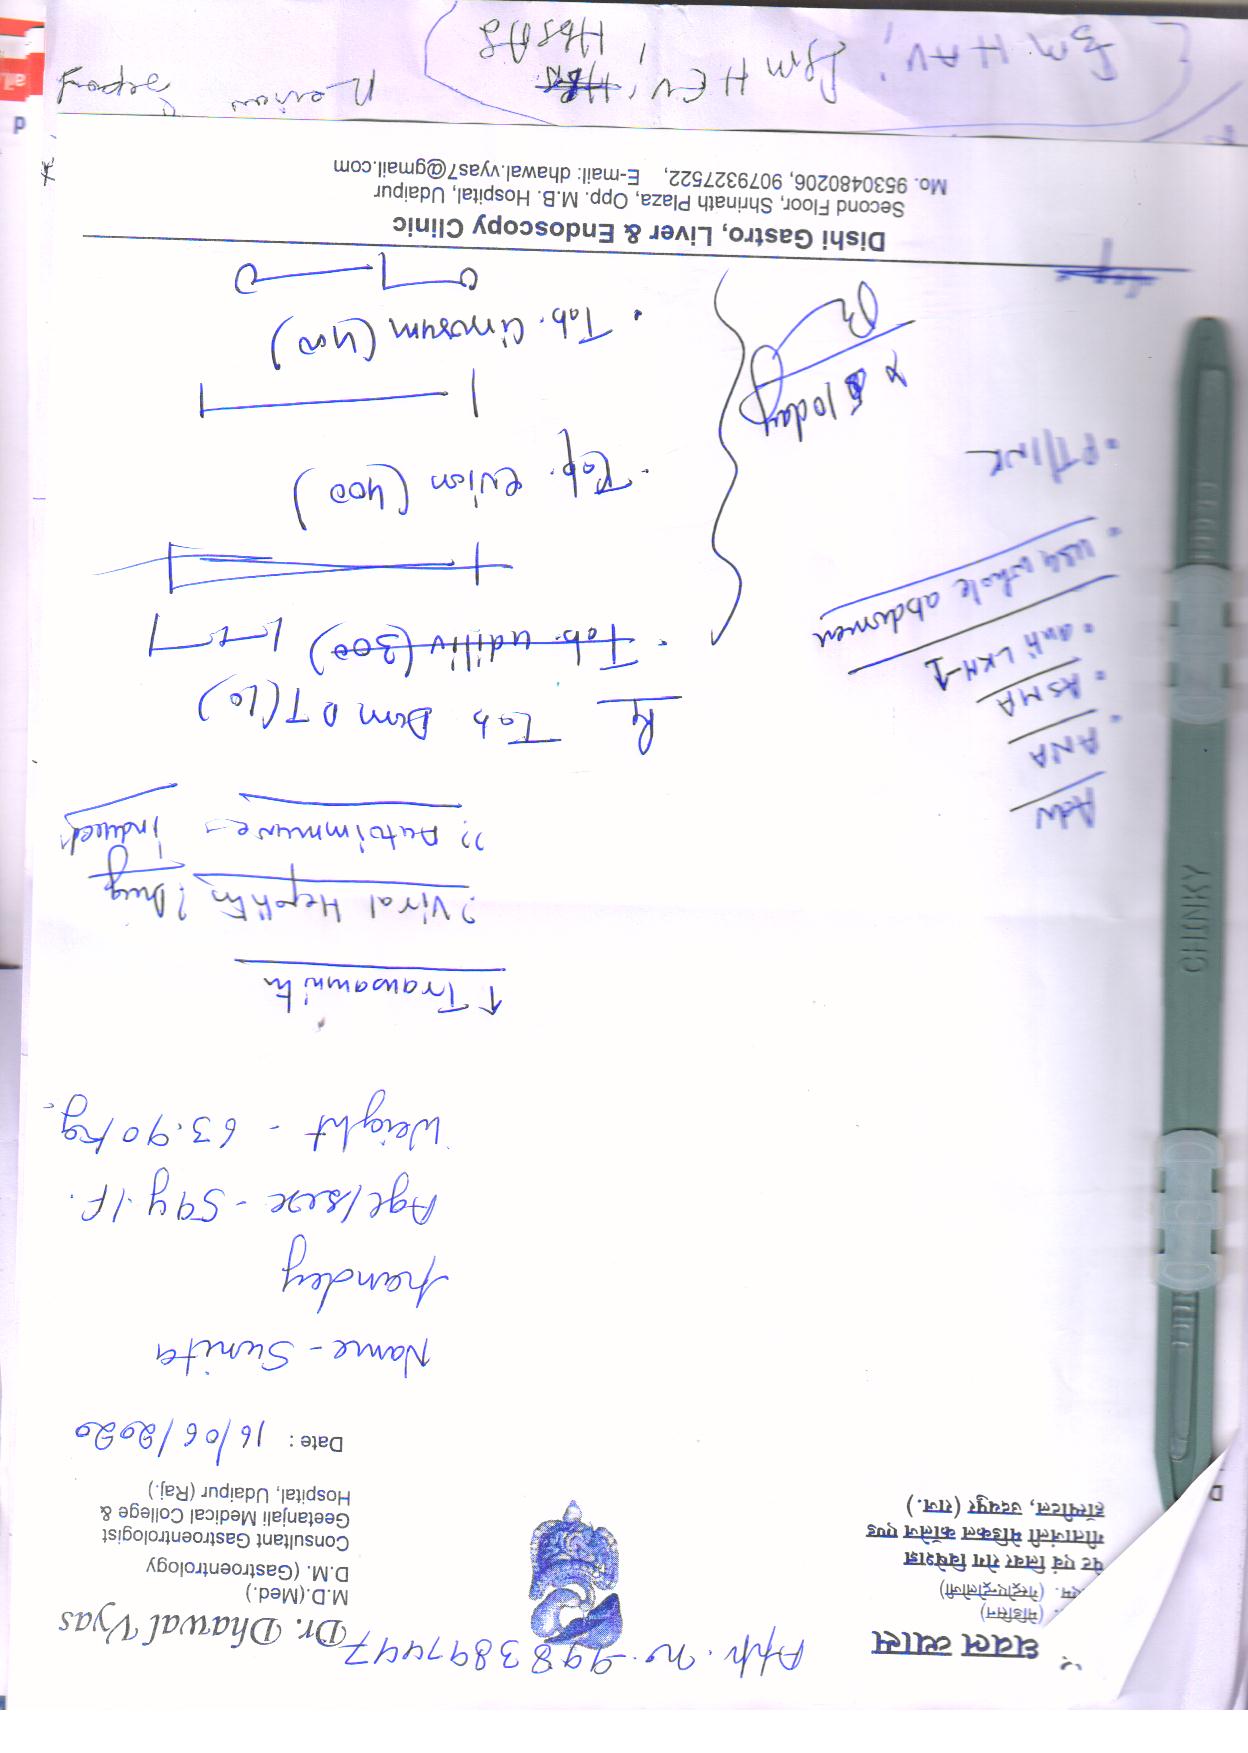 Aph. no. 9983897447
धवल व्यास
(मेडिसिन)
एम. (गेस्ट्रोएन्ट्रोलोजी)
पेट एवं लिवर रोग विशेषज्ञ
गीतांजली मेडिकल कॉलेज एण्ड
हॉस्पीटल, उदयपुर (राज.)
Dr. Dhawal Vyas
M.D.(Med.)
D.M. (Gastroentrology
Consultant Gastroentrologist
Geetanjali Medical College &
Hospital, Udaipur (Raj.)
Date : 16/06/2020
Name - Sunita
pandey
Age/sex - 59y./F.
Weight - 63.90kg.
↑ Transamnitis
? Viral Hepatitis ? Drug
induced
?? Autoimmune
Adv
• ANA
• ASMA
• anti LKM-1
• USG whole abdomen
• PT/INR
Rx Tab Dom DT (10)
• Tab. udiliv (300)
• Cap. evion (400)
• Tab. Limosum (400)
x 10day
Dishi Gastro, Liver & Endoscopy Clinic
Second Floor, Shrinath Plaza, Opp. M.B. Hospital, Udaipur
Mo. 9530480206, 9079327522, E-mail: dhawal.vyas7@gmail.com
IgM HAV, IgM HEV,
HBsAg
CHINKY